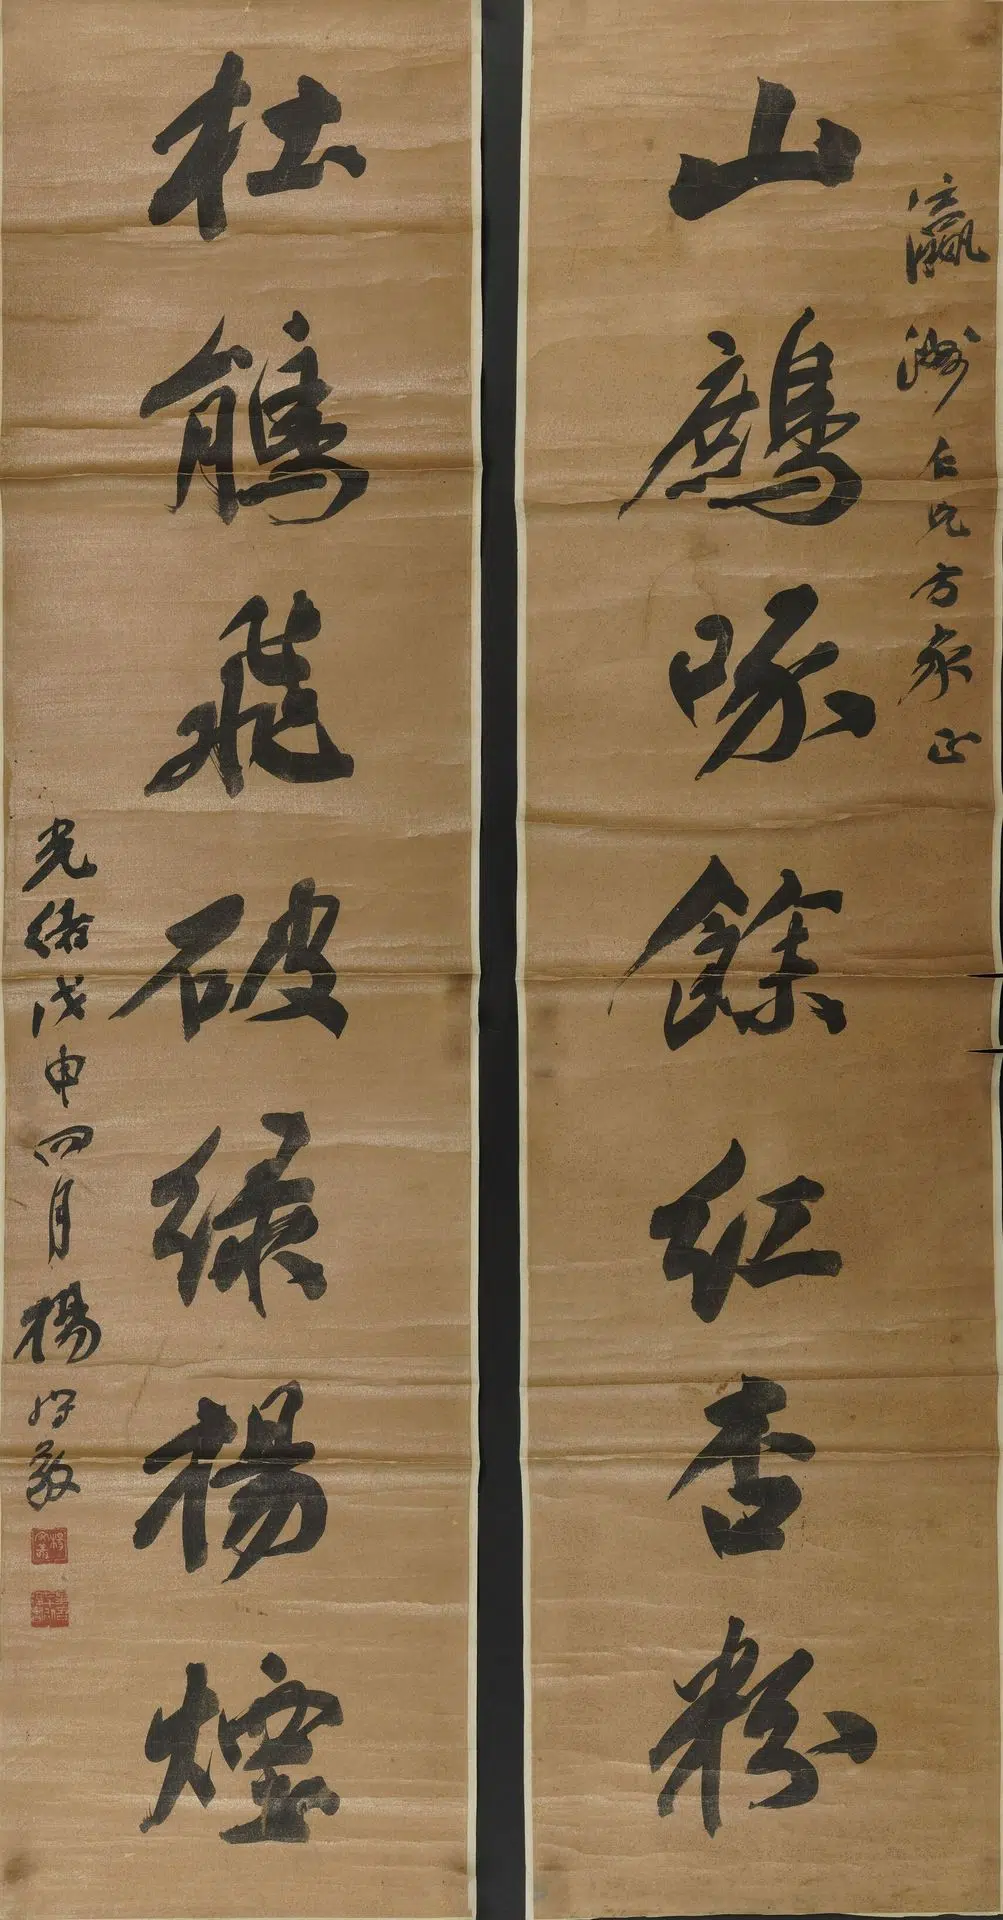 瀛洲仁兄方家正
山鷓啄餘紅杏粉
杜鵑飛破绿楊煙
光緒戊申四月楊守敬